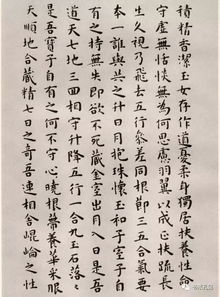 積精香潔玉女存作道憂柔身獨居扶養性命
守虛無恬惔無為何思慮羽翼以成正扶疏長
生久視乃飛去五行參差同根節三五合氣要
本一誰與共之升日月抱珠懷玉和子室子自
有之持無失即欲不死藏金室出月入日是吾
道天七地三回相守升降五行一合九玉石落〻
是吾寶子自有之何不守心曉根蒂養華采服
天順地合藏精七日之奇吾連相舍崐崘之性